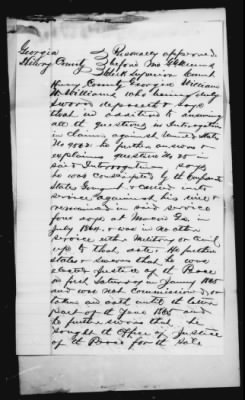 Georgia Personally appeared
Henry County before
Clerk Superior Court
Henry County Georgia William
Williams who being duly
sworn deposeth & says
that in addition to answering
all the questions as Interrogatories
in claims against United States
No he further answers &
explains question No
said Interrogatories says
he was conscripted by the Confederate
State Government & carried into
service against his will &
remained in said service
four days at Macon Ga in
July 1864 & was in no other
service either Military or Civil
up to that date. He further
states & swears that he was
elected Justice of the Peace
on first Saturday in January 1865
and was not Commissioned or
taken an oath until the latter
part of the June 1865 and
he further swears that he
sought the Office of Justice
of the Peace for the sole